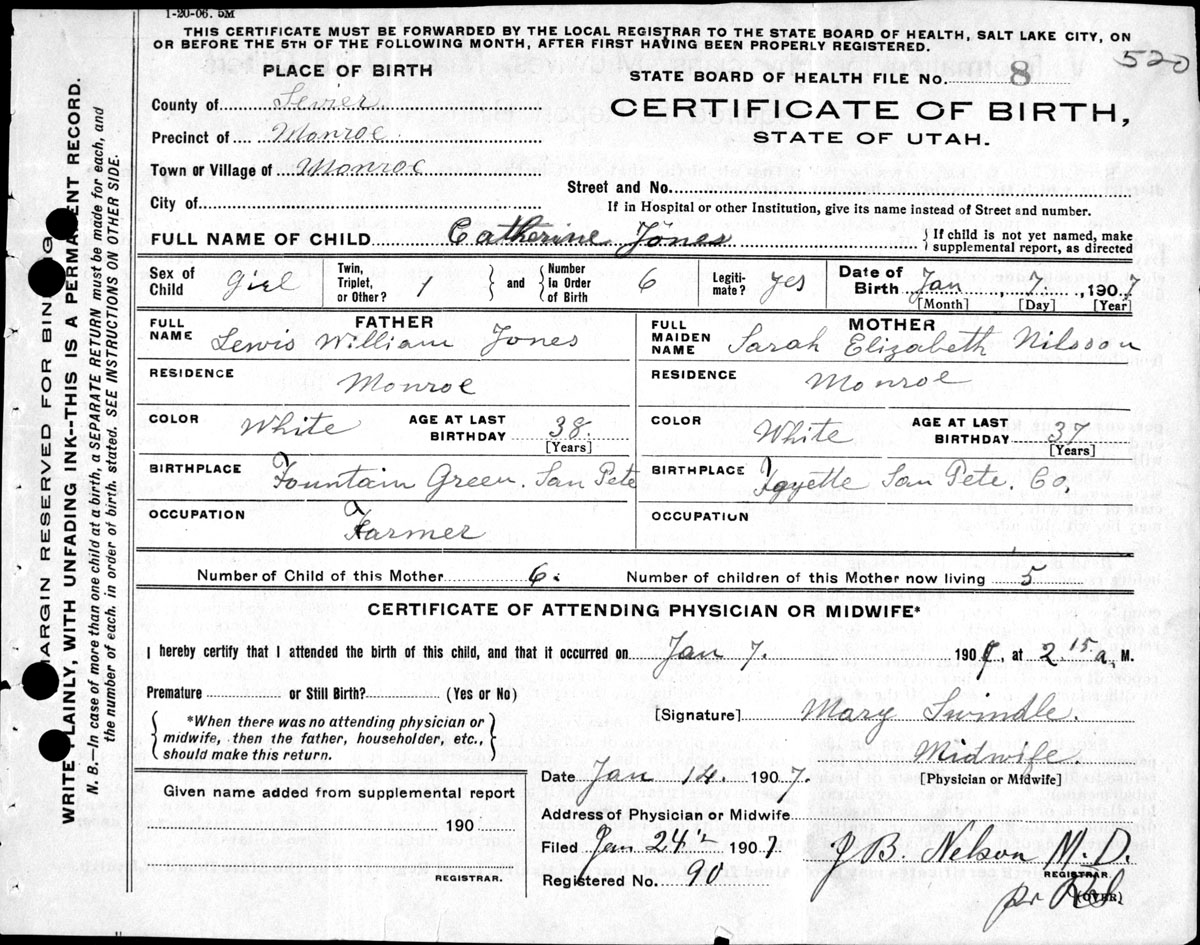 1-20-06. 5M
THIS CERTIFICATE MUST BE FORWARDED BY THE LOCAL REGISTRAR TO THE STATE BOARD OF HEALTH, SALT LAKE CITY, ON
OR BEFORE THE 5TH OF THE FOLLOWING MONTH, AFTER FIRST HAVING BEEN PROPERLY REGISTERED.
520
PLACE OF BIRTH
STATE BOARD OF HEALTH FILE No. 8
County of Sevier
CERTIFICATE OF BIRTH,
Precinct of Monroe
STATE OF UTAH.
Town or Village of Monroe
Street and No.
City of
If in Hospital or other Institution, give its name instead of Street and number.
FULL NAME OF CHILD Catherine Jones
{If child is not yet named, make
supplemental report, as directed
Sex of Child Girl
Twin, Triplet, or Other? 1
} and {
Number In Order of Birth 6
Legiti-mate? yes
Date of Birth Jan 7, 1907
[Month] [Day] [Year]
FATHER
FULL NAME Lewis William Jones
MOTHER
FULL MAIDEN NAME Sarah Elizabeth Nilsson
RESIDENCE Monroe
RESIDENCE Monroe
COLOR White
AGE AT LAST BIRTHDAY 38.
[Years]
COLOR White
AGE AT LAST BIRTHDAY 37
[Years]
BIRTHPLACE Fountain Green. San Pete
BIRTHPLACE Fayette San Pete. Co,
OCCUPATION Farmer
OCCUPATION
Number of Child of this Mother 6.
Number of children of this Mother now living 5
CERTIFICATE OF ATTENDING PHYSICIAN OR MIDWIFE*
I hereby certify that I attended the birth of this child, and that it occurred on Jan 7. 1907, at 2 15 a. M.
Premature or Still Birth? (Yes or No)
{*When there was no attending physician or
midwife, then the father, householder, etc.,
should make this return.}
[Signature] Mary Swindle.
Midwife
[Physician or Midwife]
Date Jan 14. 1907.
Given name added from supplemental report
190
REGISTRAR.
Address of Physician or Midwife
Filed Jan 24th 1907
J B. Nelson M.D.
REGISTRAR.
Registered No. 90
pr
(OVER)
MARGIN RESERVED FOR BINDING
WRITE PLAINLY, WITH UNFADING INK--THIS IS A PERMANENT RECORD.
N. B.—In case of more than one child at a birth, a SEPARATE RETURN must be made for each, and
the number of each, in order of birth, stated. SEE INSTRUCTIONS ON OTHER SIDE.